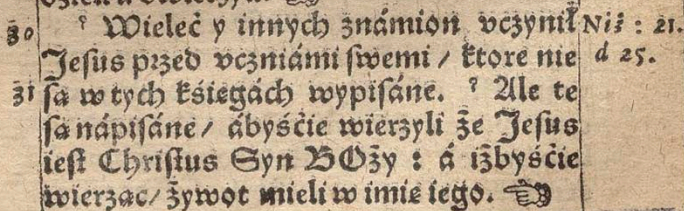 30 ˀ Wieleć y innych známion vcżynił Niż : 21.
Jesus przed vcżniámi swemi / ktore nie d 25.
31 są w tych kśięgách wypisáne. ˀ Ale te
są nápisáne / ábyśćie wierzyli że Jesus
iest Christus Syn BOży : á iżbyśćie
wierząc / żywot mieli w imię iego. ☜